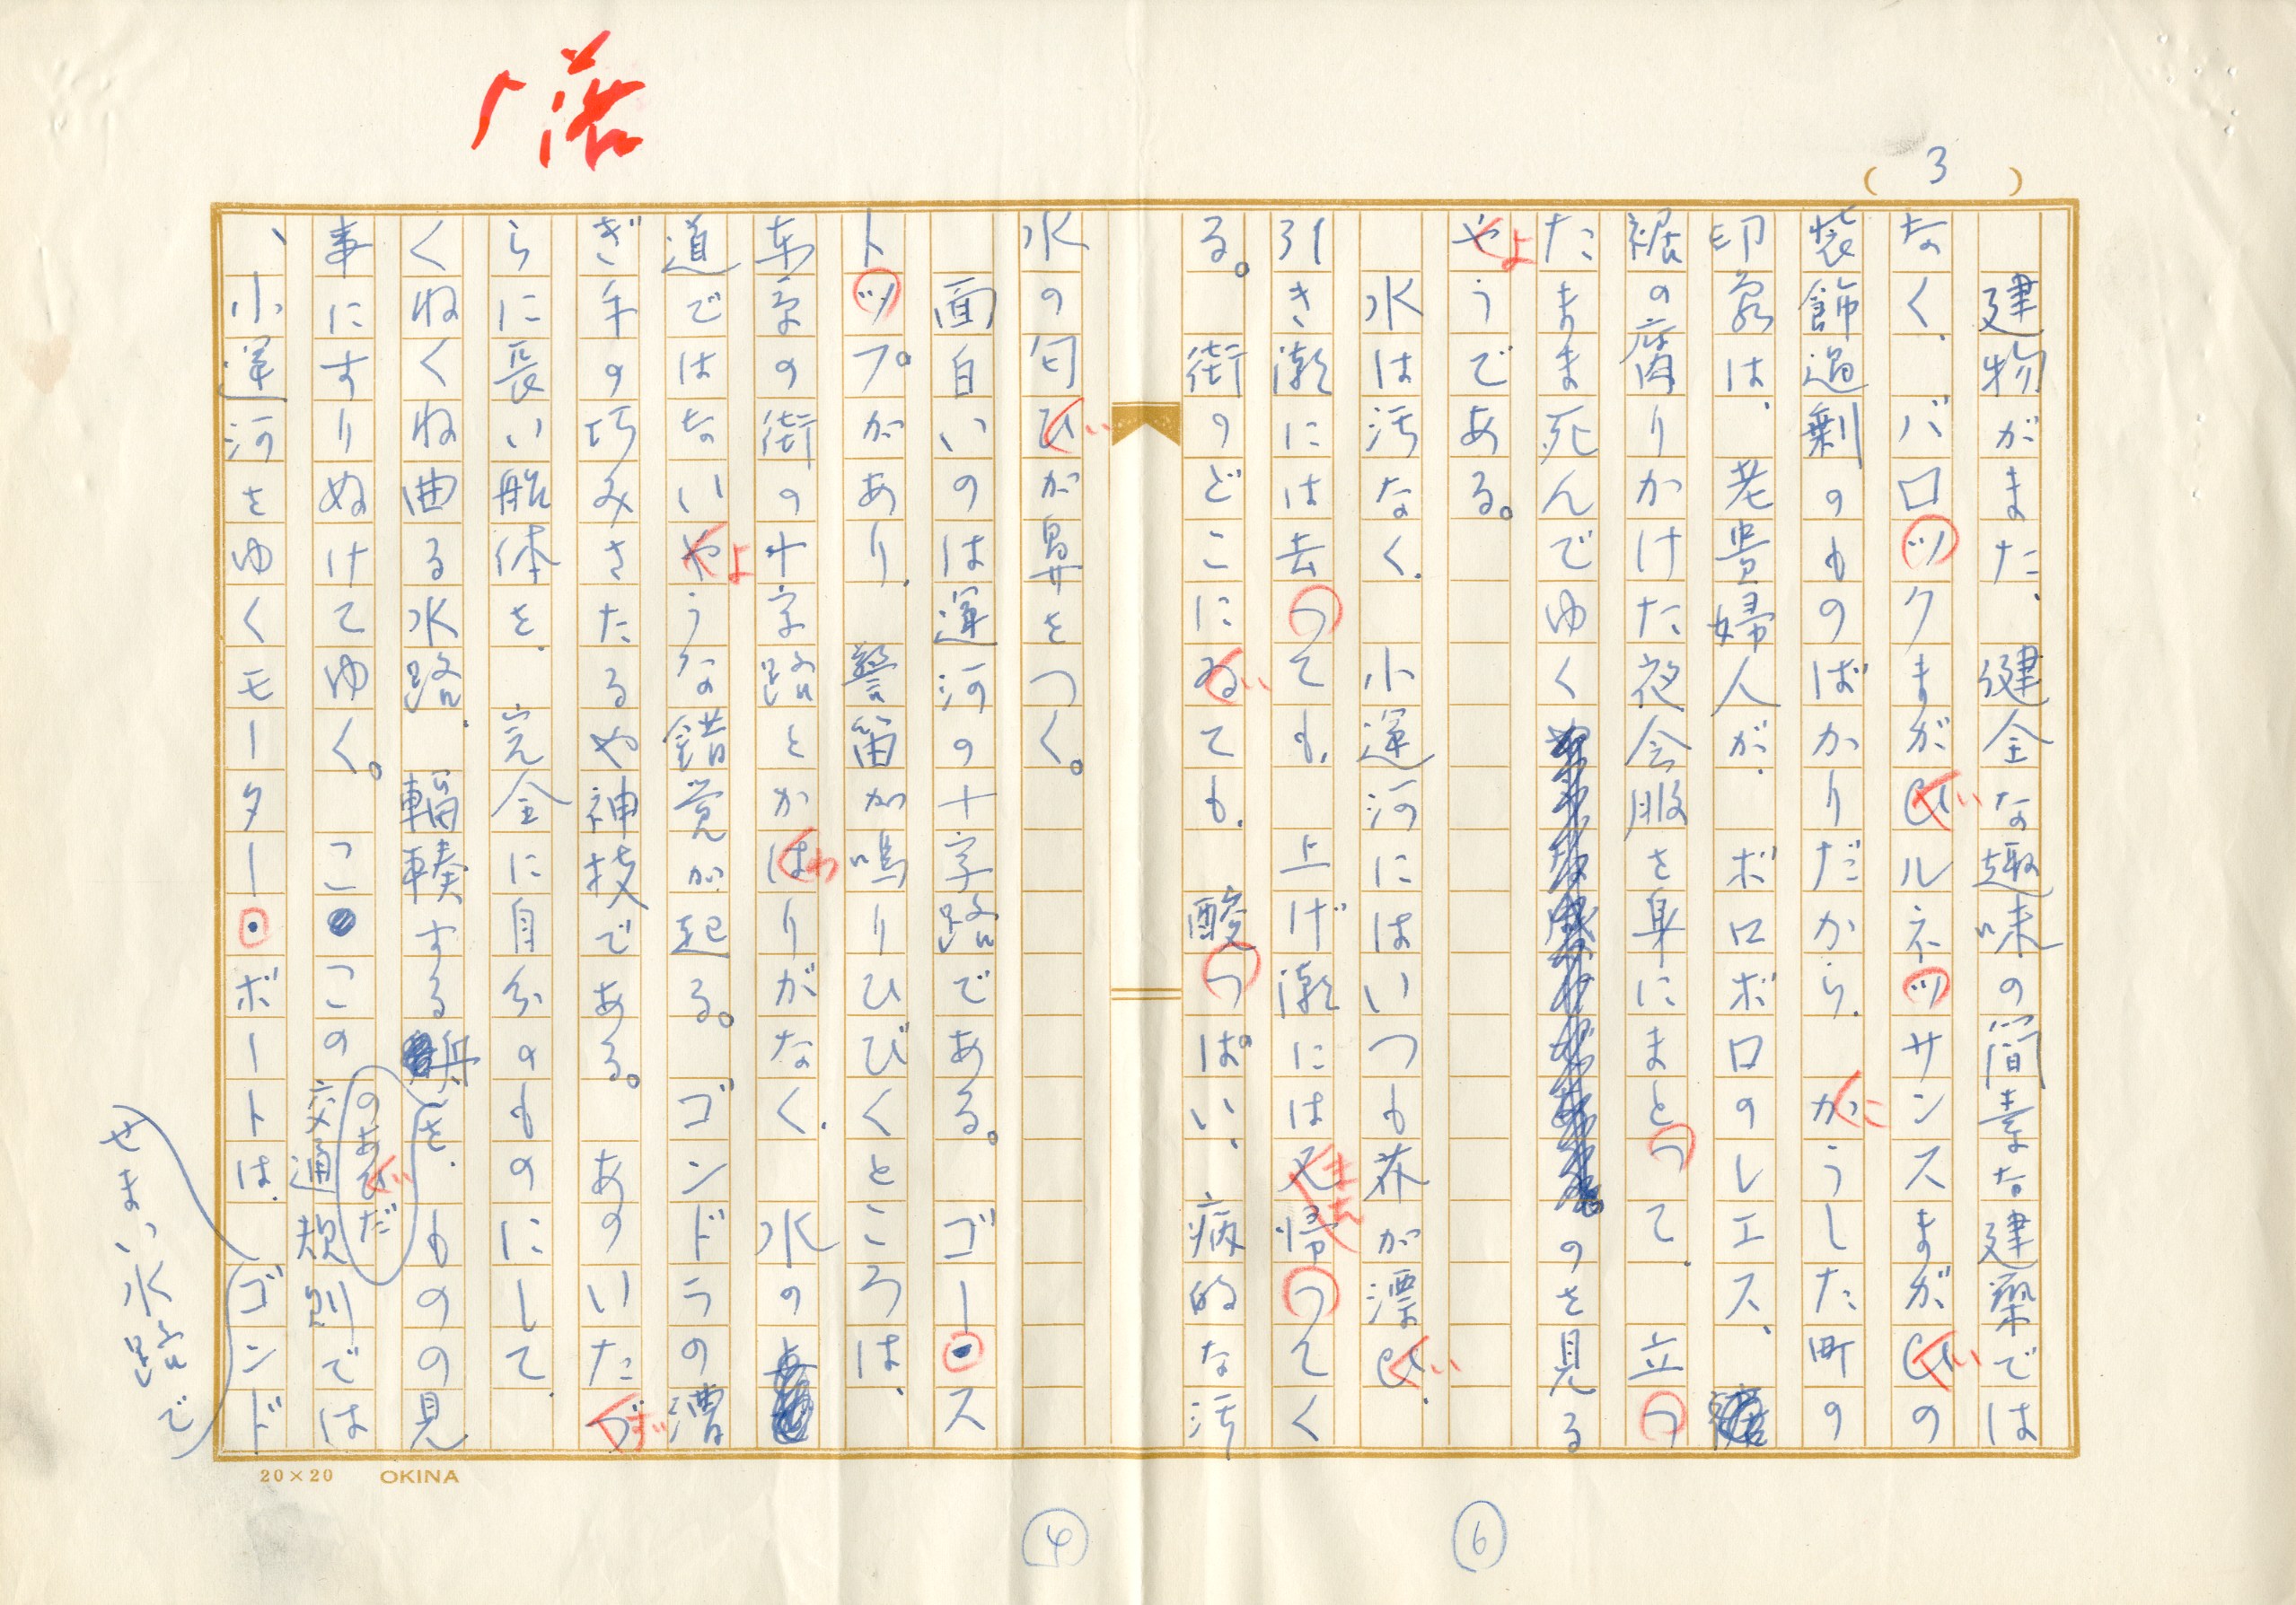 落
(3)
建物がまた、健全な趣味の簡素な建築では
なく、バロックまがひルネッサンスまがひの
装飾過剰のものばかりだから、かうした町の
印象は、老貴婦人が、ボロボロのレエス、
裾の腐りかけた夜会服を身にまとつて、立つ
たまま死んでゆくのを見る
やうである。
よ
水は汚なく、小運河にはいつも芥が漂ひ、
引き潮には去つても、上げ潮には又帰つてく
また
る。街のどこにゐても、酸つぱい、病的な汚
水の匂ひが鼻をつく。
面白いのは運河の十字路である。ゴー・ス
トップがあり、警笛が鳴りひびくところは、
車の街の十字路とかはりがなく、水の
わ
道ではないやうな錯覚が起る。ゴンドラの漕
よ
ぎ手の巧みさたるや神技である。あのいたづ
らに長い船体を、完全に自分のものにして、
くねくね曲る水路、輻輳する船を、ものの見
のあひだ
い
事にすりぬけてゆく。ここの交通規則では
、小運河をゆくモーター・ボートは、ゴンド
せまい水路で
20×20 OKINA
④
⑥